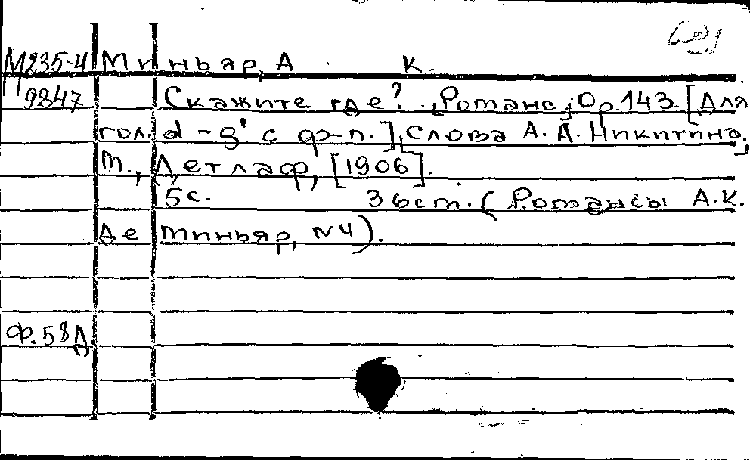 М235-4 Миньяр, А. К.
9247 Скажите где? Романс, Ор. 143. [Для
гол. d - g' с ф-п.], слова А. А. Никитина,
М., Детлаф, [1906].
5с. 3 экт. (Романсы А.К.
де Миньяр, N4).
Ф. 58д